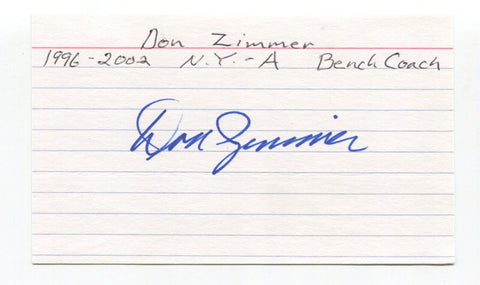 Don Zimmer
1996-2002 N.Y.-A Bench Coach
Don Zimmer